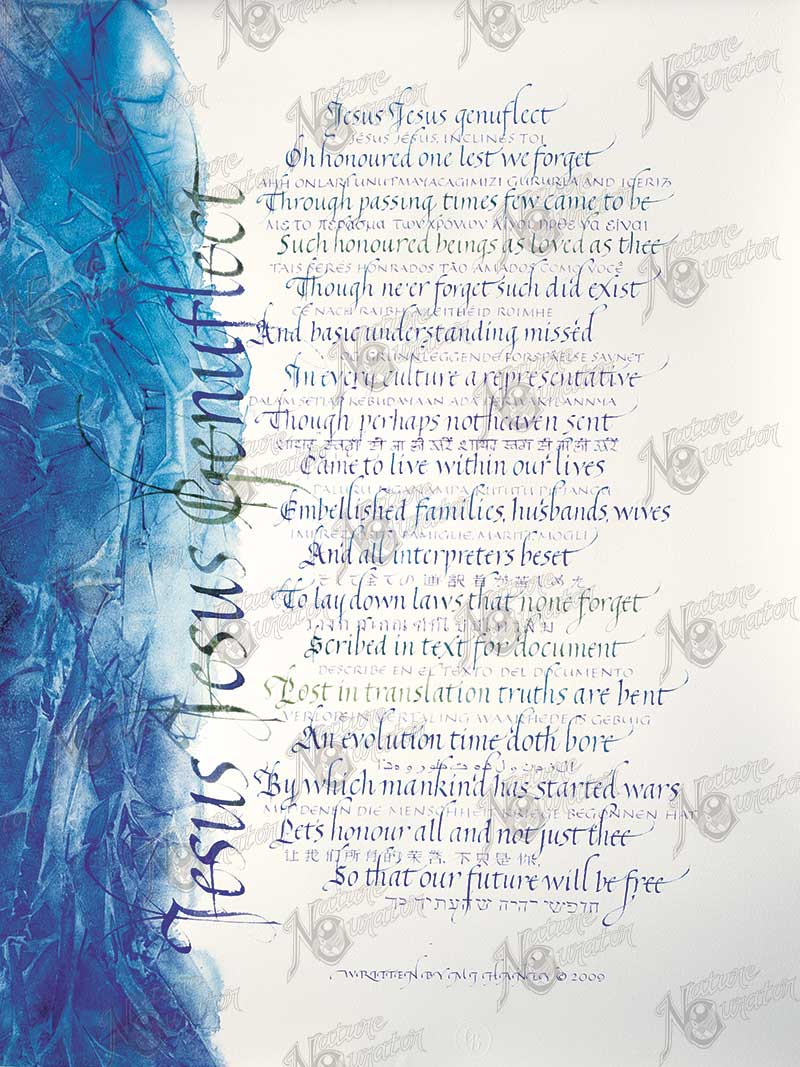 Jesus Jesus Genuflect
Jesus Jesus genuflect
JÉSUS JÉSUS, INCLINES TOI
Oh honoured one lest we forget
AHH ONLARI UNUTMAYACAGIMIZI GURURLA AND
Through passing times few came to be
Με το πέρασμα των χρόνων να είναι
Such honoured beings as loved as thee
TAIS SERES HONRADOS TÃO AMADOS COMO VOCÊ
Though ne'er forget such did exist
RAIBH A LEITHEID ROIMHE
And basic understanding missed
GRUNNLEGGENDE SAVNET
In every culture a representative
DALAM SETIAP KEBUDAYAAN ADA
Though perhaps not heaven sent
Came to live within our lives
Embellished families, husbands, wives
FAMIGLIE, MARITI, MOGLI
And all interpreters beset
そして全ての通訳者が苦しめた
To lay down laws that none forget
Scribed in text for document
DESCRIBE EN EL TEXTO DEL DOCUMENTO
Lost in translation truths are bent
VERLORE IN VERTALING WAARHEDE IS GEBUIG
An evolution time doth bore
By which mankind has started wars
MIT DENEN DIE MENSCHHEIT KRIEGE BEGONNEN HAT
Let's honour all and not just thee
让我们所有的荣誉, 不只是你,
So that our future will be free
חופשי יהיה שהעתיד כך
WRITTEN BY MJ HANLY © 2009